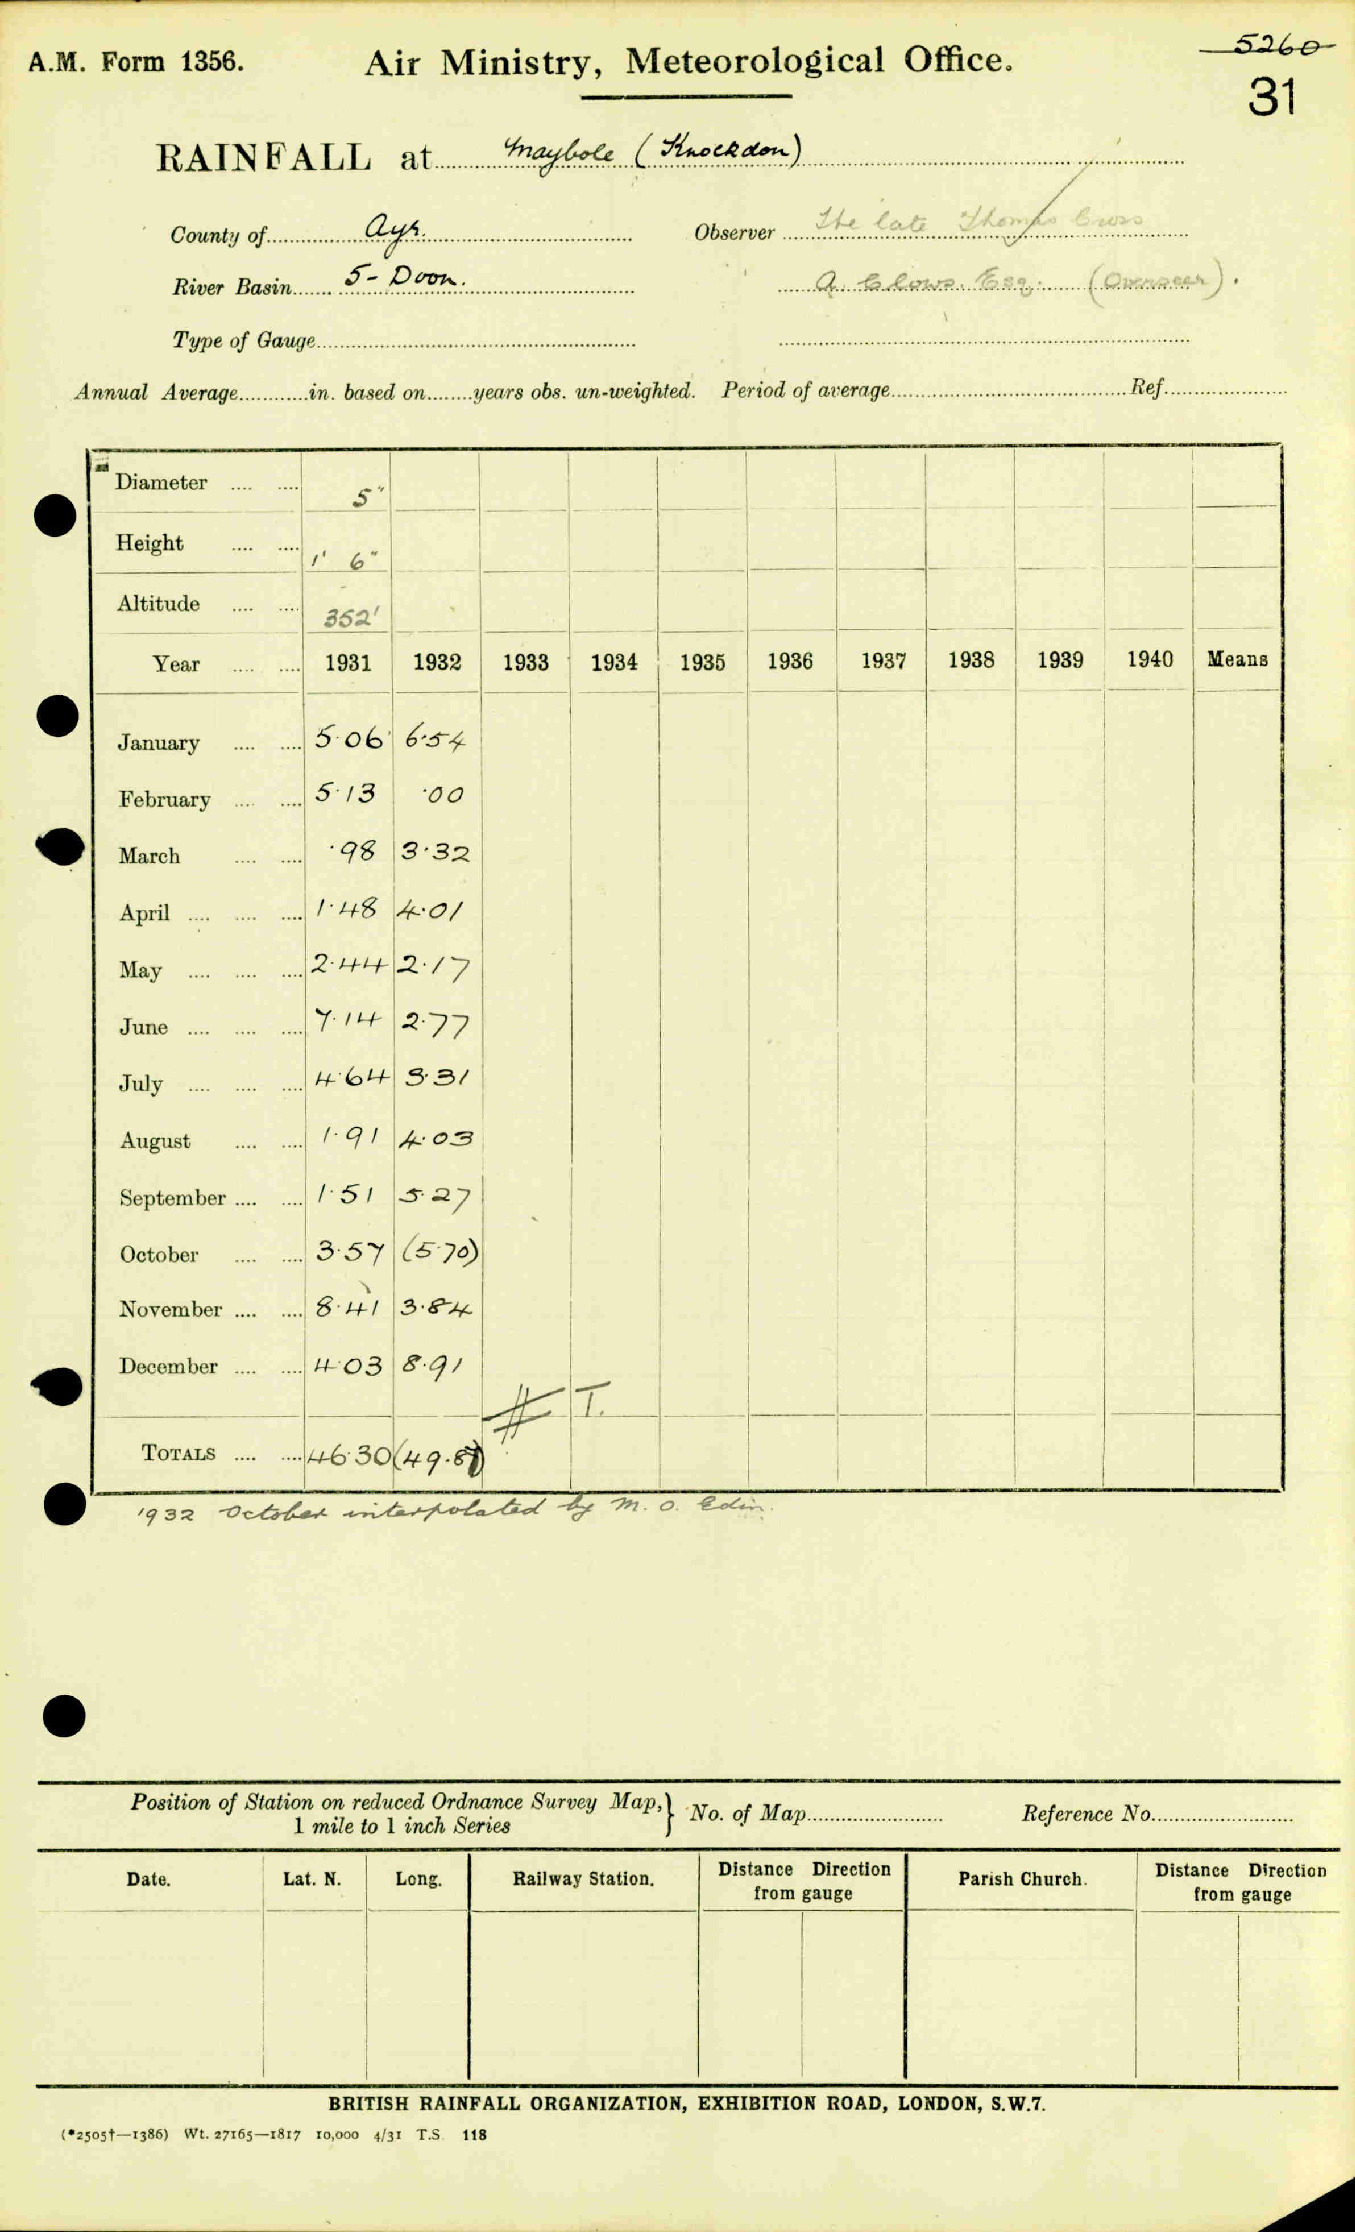 5260
A.M. Form 1356. Air Ministry, Meteorological Office.
31
RAINFALL at Maybole (Knockdon)
County of Ayr. Observer The late Thomas Cross
River Basin 5- Doon. A. Clows. Esq. (Overseer).
Type of Gauge
Annual Average in. based on years obs. un-weighted. Period of average Ref.
Diameter 5"
Height 1' 6"
Altitude 352'
Year 1931 1932 1933 1934 1935 1936 1937 1938 1939 1940 Means
January 5·06 6·54
February 5·13 ·00
March ·98 3·32
April 1·48 4·01
May 2·44 2·17
June 7·14 2·77
July 4·64 3·31
August 1·91 4·03
September 1·51 5·27
October 3·57 (5·70)
November 8·41 3·84
December 4·03 8·91
T.
TOTALS 46·30 (49·87)
1932 October interpolated by M. O. Edin.
Position of Station on reduced Ordnance Survey Map, } No. of Map Reference No.
1 mile to 1 inch Series
Date. Lat. N. Long. Railway Station. Distance Direction Parish Church. Distance Direction
from gauge from gauge
BRITISH RAINFALL ORGANIZATION, EXHIBITION ROAD, LONDON, S.W.7.
(*2505†—1386) Wt. 27165—1817 10,000 4/31 T.S. 118